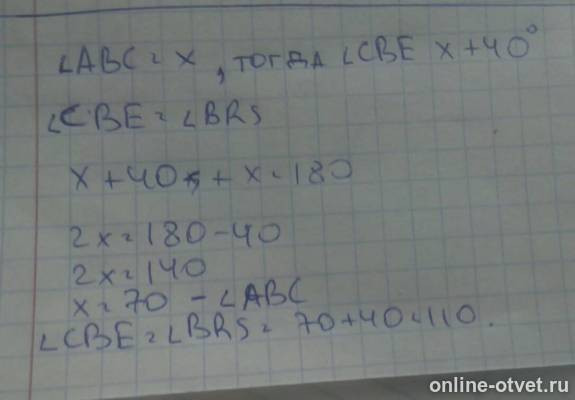 ∠ABC = x, тогда ∠CBE x+40°
∠CBE = ∠BRS
x+40+x=180
2x=180-40
2x=140
x=70 - ∠ABC
∠CBE=∠BRS=70+40=110.
online-otvet.ru